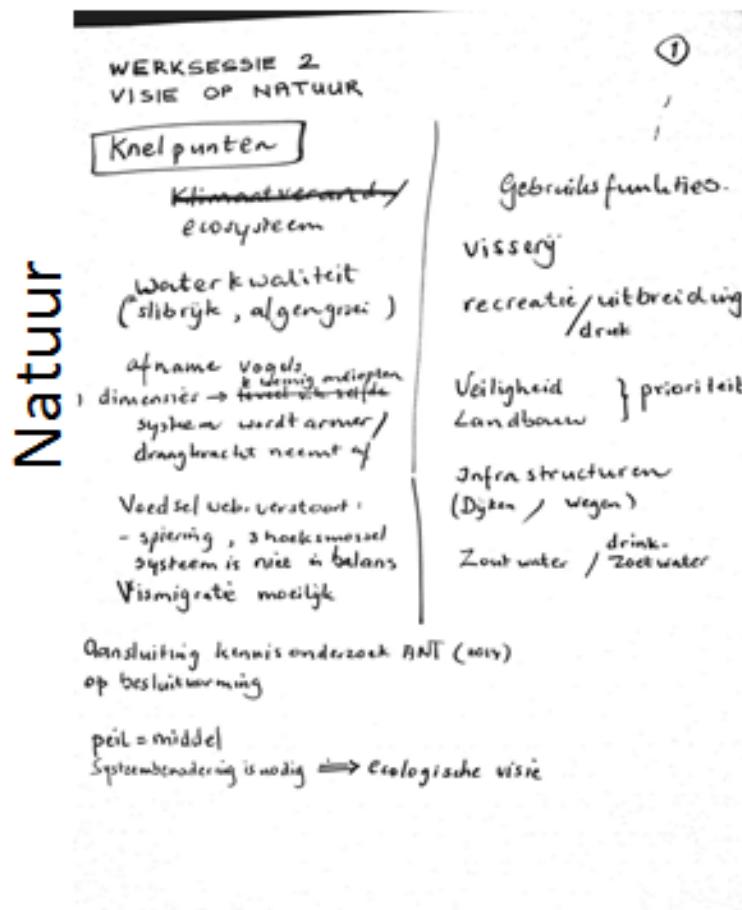 Natuur
1
WERKSESSIE 2
VISIE OP NATUUR
Knelpunten
Klimaatverand/
ecosysteem
waterkwaliteit
(slibrijk, algengroei)
afname vogels
te weinig ondiepten
dimensies → teveel v/h zelfde
systeem wordt armer/
draagkracht neemt af
Voedselweb verstoort:
- spiering, 3hoeksmossel
systeem is niet in balans
Vismigratie moeilijk
Gebruiksfunkties.
visserij
recreatie/uitbreiding
druk
Veiligheid } prioriteit
Landbouw
Infrastructuren
(Dijken / wegen)
drink-
Zout water / zoetwater
Aansluiting kennis onderzoek ANT (2014)
op besluitvorming
peil = middel
Systeembenadering is nodig ⟹ ecologische visie